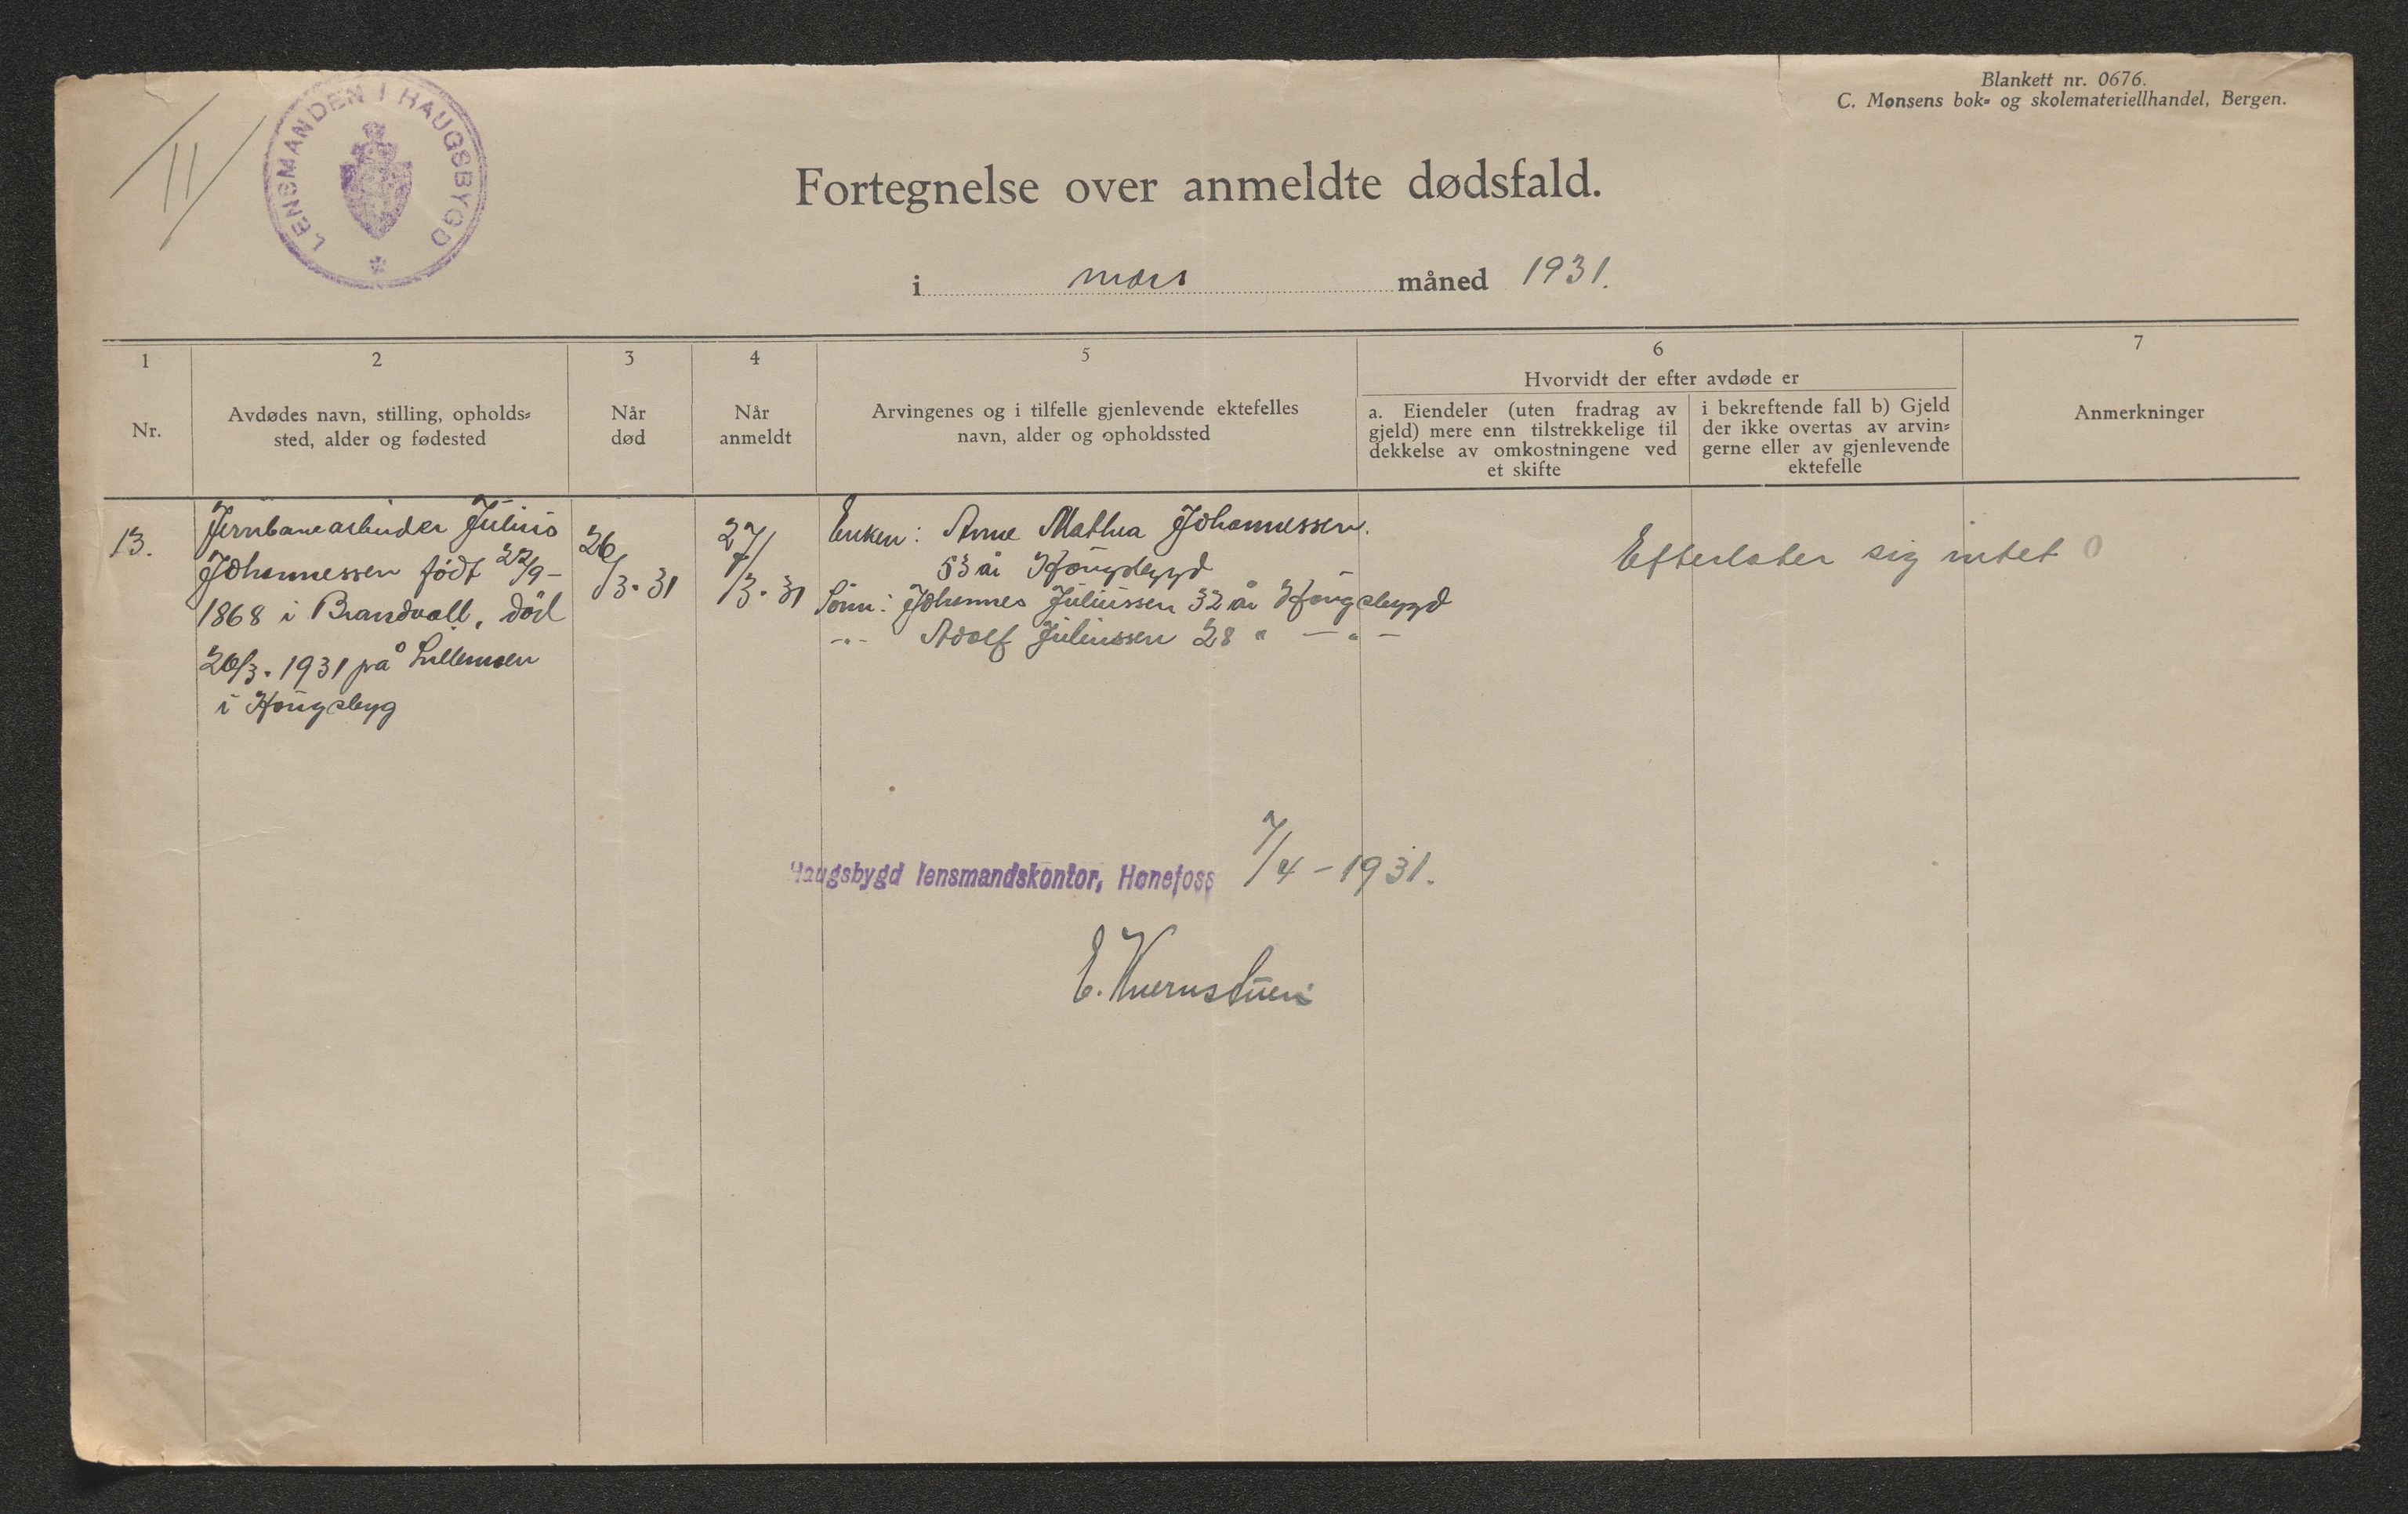 Blankett nr. 0676.
C. Monsens bok- og skolemateriellhandel, Bergen.
II
LENSMANDEN I HAUGSBYGD
Fortegnelse over anmeldte dødsfald.
i mars måned 1931.
1
Nr.
2
Avdødes navn, stilling, opholds-
sted, alder og fødested
3
Når
død
4
Når
anmeldt
5
Arvingenes og i tilfelle gjenlevende ektefelles
navn, alder og opholdssted
6
Hvorvidt der efter avdøde er
a. Eiendeler (uten fradrag av
gjeld) mere enn tilstrekkelige til
dekkelse av omkostningene ved
et skifte
i bekreftende fall b) Gjeld
der ikke overtas av arvin-
gerne eller av gjenlevende
ektefelle
7
Anmerkninger
13.
Jernbanearbeider Julius
Johannessen født 22/9-
1868 i Brandvall, död
26/3. 1931 på Lillemoen
i Haugsbyg
26/3. 31
27/3. 31
Enken: Anne Mathea Johannessen.
53 år Haugsbygd
Sönn: Johannes Juliussen 32 år Haugsbygd
-"- Adolf Juliussen 28 " — " —
Efterlater sig intet 0
Haugsbygd lensmandskontor, Hønefoss 7/4 - 1931.
E. Kvernstuen